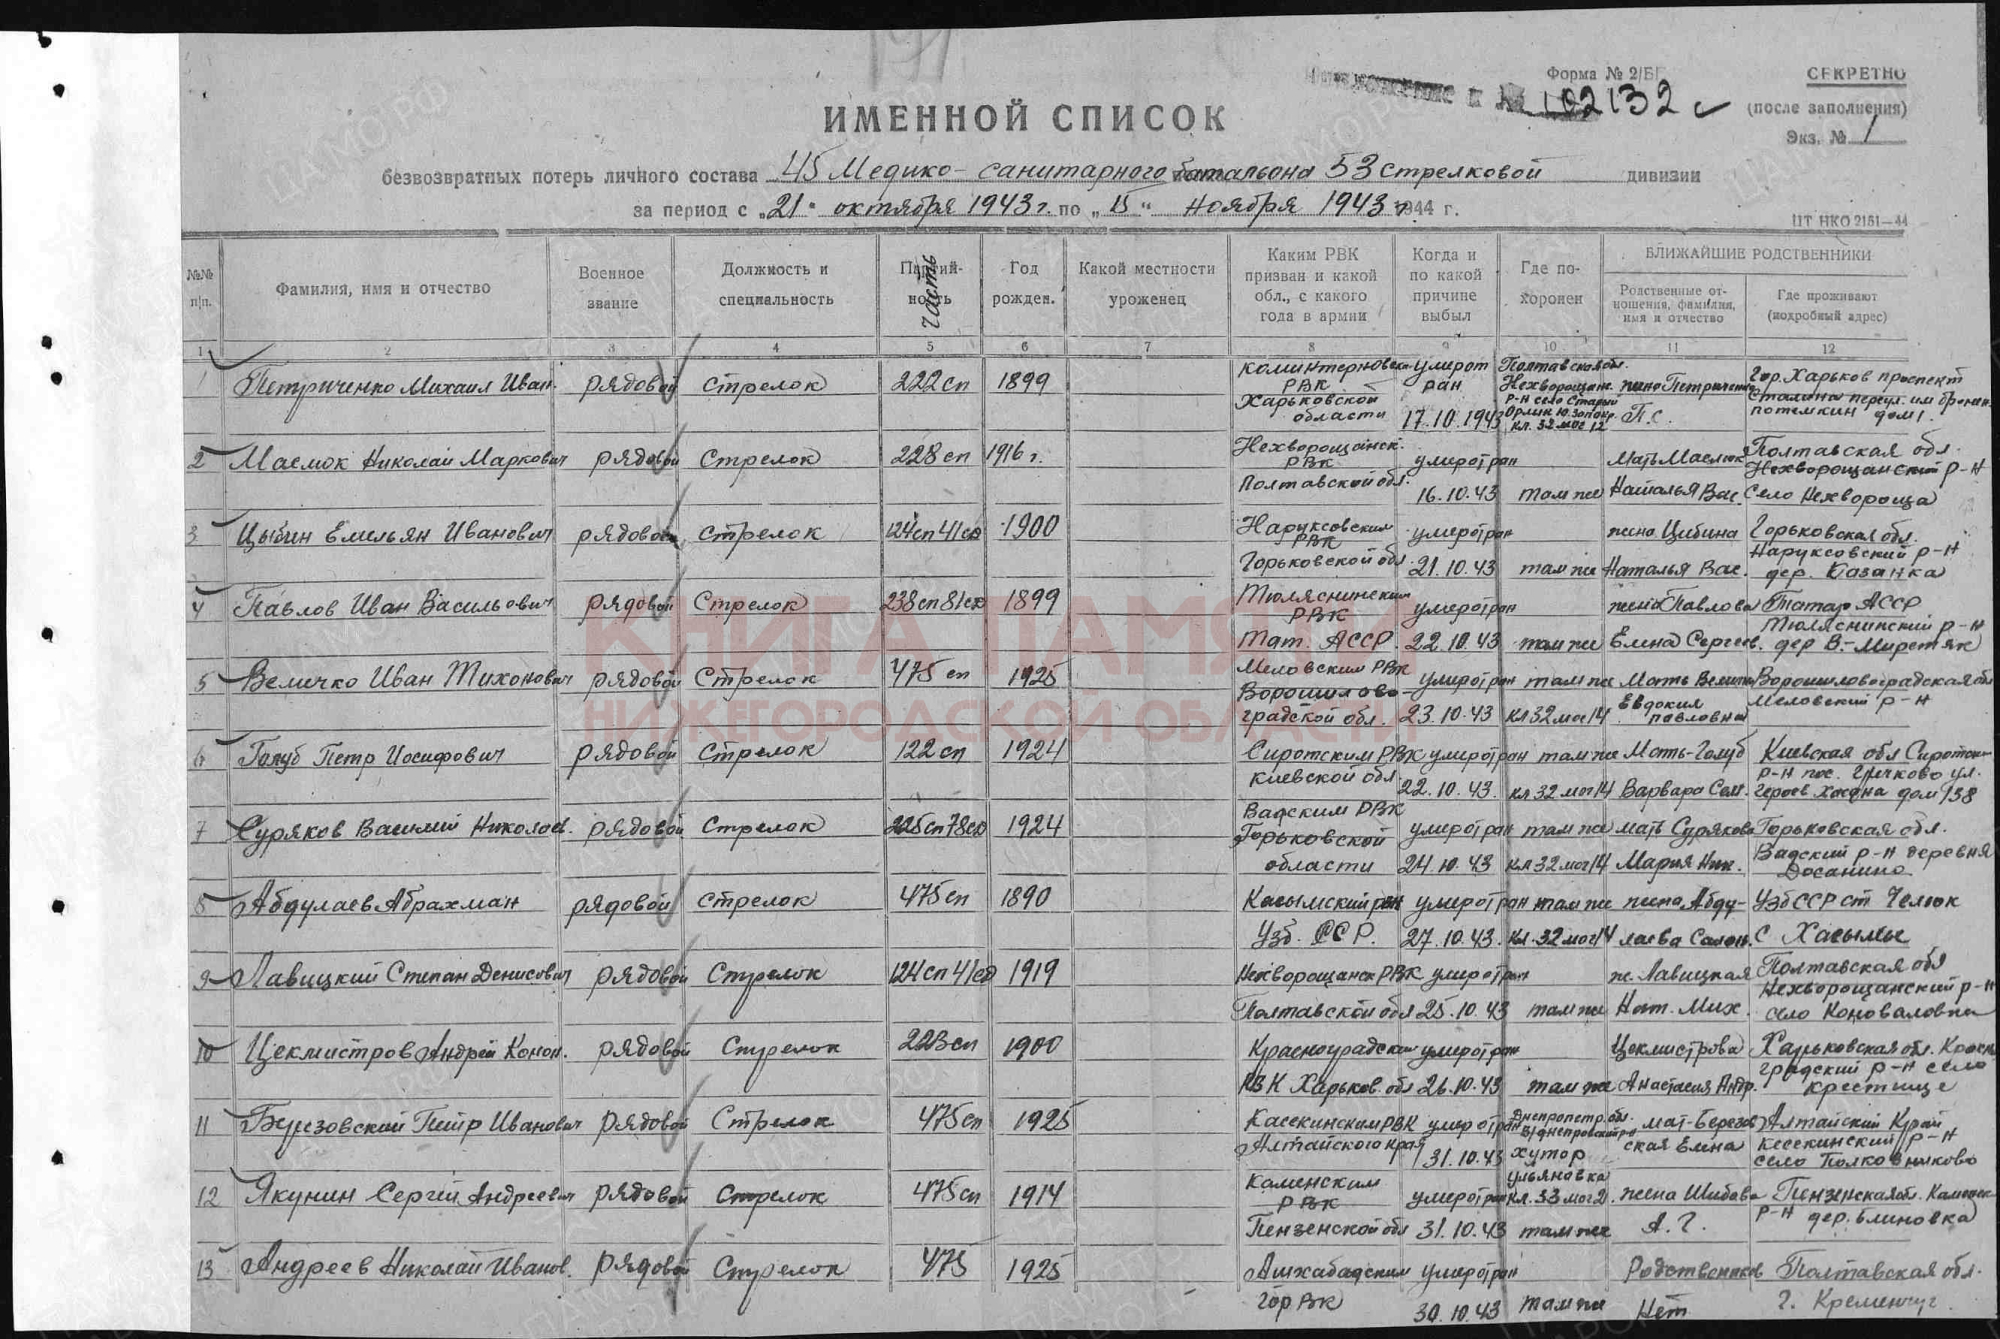 Форма № 2/БП
СЕКРЕТНО
(после заполнения)
Экз. № 1
102132с
ИМЕННОЙ СПИСОК
безвозвратных потерь личного состава 45 Медико-санитарного батальона 53 стрелковой дивизии
за период с „21“ октября 1943 г. по „15“ ноября 1943 г. 1944 г.
ЦТ НКО 2151—44
№№ п/п. Фамилия, имя и отчество Военное звание Должность и специальность Партийность часть Год рожден. Какой местности уроженец Каким РВК призван и какой обл., с какого года в армии Когда и по какой причине выбыл Где похоронен БЛИЖАЙШИЕ РОДСТВЕННИКИ
Родственные отношения, фамилия, имя и отчество Где проживают (подробный адрес)
1 2 3 4 5 6 7 8 9 10 11 12
1 Петриченко Михаил Иван. рядовой стрелок 222 сп 1899 Коминтерновск РВК Харьковской области умер от ран 17.10.1943 Полтавская обл. Нехворощанск. р-н село Старый Орлик Ю. Запокр. кл. 32 мог 12 жена Петриченко П.С. Гор. Харьков проспект Сталина переул. им. бронен. потемкин дом 1.
2 Маслюк Николай Маркович рядовой Стрелок 228 сп 1916 г. Нехворощанск. РВК Полтавской обл. умер от ран 16.10.43 там же Мать Маслюк Наталья Вас. Полтавская обл. Нехворощанский р-н село Нехвороща
3 Цыбин Емельян Иванович рядовой Стрелок 124 сп 41 сд 1900 Наруксовским РВК Горьковской обл. умер от ран 21.10.43 там же жена Цибина Наталья Вас. Горьковская обл. Наруксовский р-н дер. Казанка
4 Павлов Иван Васильович рядовой Стрелок 238 сп 81 сд 1899 Тюляснинским РВК Тат. АССР умер от ран 22.10.43 там же жена Павлова Елена Сергеев. Татар АССР Тюляснинский р-н дер В.-Миретяк
5 Величко Иван Тихонович рядовой Стрелок 475 сп 1925 Меловским РВК Ворошиловоградской обл. умер от ран 23.10.43 там же кл 32 мог 14 Мать Величко Евдокия павловна Ворошиловоградская обл Меловский р-н
6 Голуб Петр Иосифович рядовой Стрелок 122 сп 1924 Сиротским РВК Киевской обл. умер от ран 22.10.43. там же кл 32 мог 14 Мать-Голуб Варвара Сем. Киевская обл Сиротски р-н пос. Гричково ул. героев Хасана дом 138
7 Суряков Василий Николаев. рядовой Стрелок 225 сп 78 сд 1924 Вадским РВК Горьковской области умер от ран 24.10.43 там же кл 32 мог 14 мать Сурякова Мария Ник. Горьковская обл. Вадский р-н деревня Досанино
8 Абдулаев Абрахман рядовой Стрелок 475 сп 1890 Касымский рвк Узб. ССР. умер от ран 27.10.43. там же кл. 32 мог 14 жена Абдулаева Узб ССР ст Челюк с Хасымы
9 Лавицкий Степан Денисович рядовой Стрелок 124 сп 41 сд 1919 Нехворощанск РВК Полтавской обл умер от ран 25.10.43 там же ж. Лавицкая Нат. Мих. Полтавская обл Нехворощанский р-н село Коноваловка
10 Цекмистров Андрей Конон. рядовой Стрелок 223 сп 1900 Красноградским РВК Харьков. обл умер от ран 26.10.43 там же Цекмистрова Анастасия Андр. Харьковская обл. Красноградский р-н село крестище
11 Березовский Петр Иванович рядовой Стрелок 475 сп 1925 Касекинским РВК Алтайского края умер от ран 31.10.43 Днепропетр. обл. В/днепровский р-н хутор Ульяновка кл. 33 мог 2. мат-Березовская Елена Алтайский Край касекинский р-н село Полковниково
12 Якунин Сергей Андреевич рядовой Стрелок 475 сп 1914 Каменским РВК Пензенской обл умер от ран 31.10.43 там же жена Шибова А.Г. Пензенская обл. Каменск р-н дер. Блиновка
13 Андреев Николай Иванов. рядовой Стрелок 475 1925 Ашхабадским гор РВК умер от ран 30.10.43 там же Родственников Нет Полтавская обл. г. Кременчуг
КНИГА ПАМЯТИ
НИЖЕГОРОДСКОЙ ОБЛАСТИ